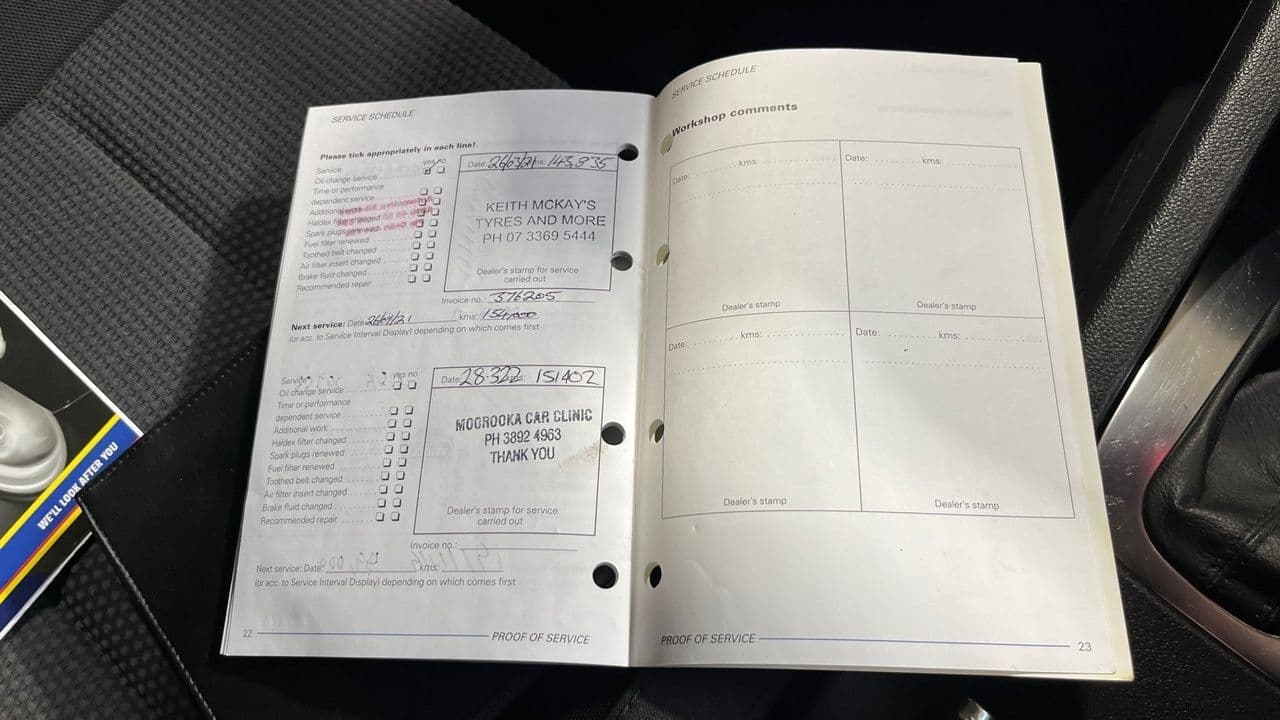 SERVICE SCHEDULE
Please tick appropriately in each line!
yes no
Service
Oil change service
Time or performance
dependent service
Additional work
Haldex filter changed
Spark plugs renewed
Fuel filter renewed
Toothed belt changed
Air filter insert changed
Brake fluid changed
Recommended repair
Date: 26/03/21 kms: 143,835
KEITH MCKAY'S
TYRES AND MORE
PH 07 3369 5444
Dealer's stamp for service
carried out
Invoice no.: 376205
Next service: Date kms: 154,000
(or acc. to Service Interval Display) depending on which comes first
Service
yes no
Oil change service
Time or performance
dependent service
Additional work
Haldex filter changed
Spark plugs renewed
Fuel filter renewed
Toothed belt changed
Air filter insert changed
Brake fluid changed
Recommended repair
Date: 28-3-22 kms: 151402
MOOROOKA CAR CLINIC
PH 3892 4963
THANK YOU
Dealer's stamp for service
carried out
Invoice no.:
Next service: Date: kms:
(or acc. to Service Interval Display) depending on which comes first
22 PROOF OF SERVICE
SERVICE SCHEDULE
Workshop comments
Date: kms:
Dealer's stamp
Date: kms:
Dealer's stamp
Date: kms:
Dealer's stamp
Date: kms:
Dealer's stamp
PROOF OF SERVICE 23
WE'LL LOOK AFTER YOU